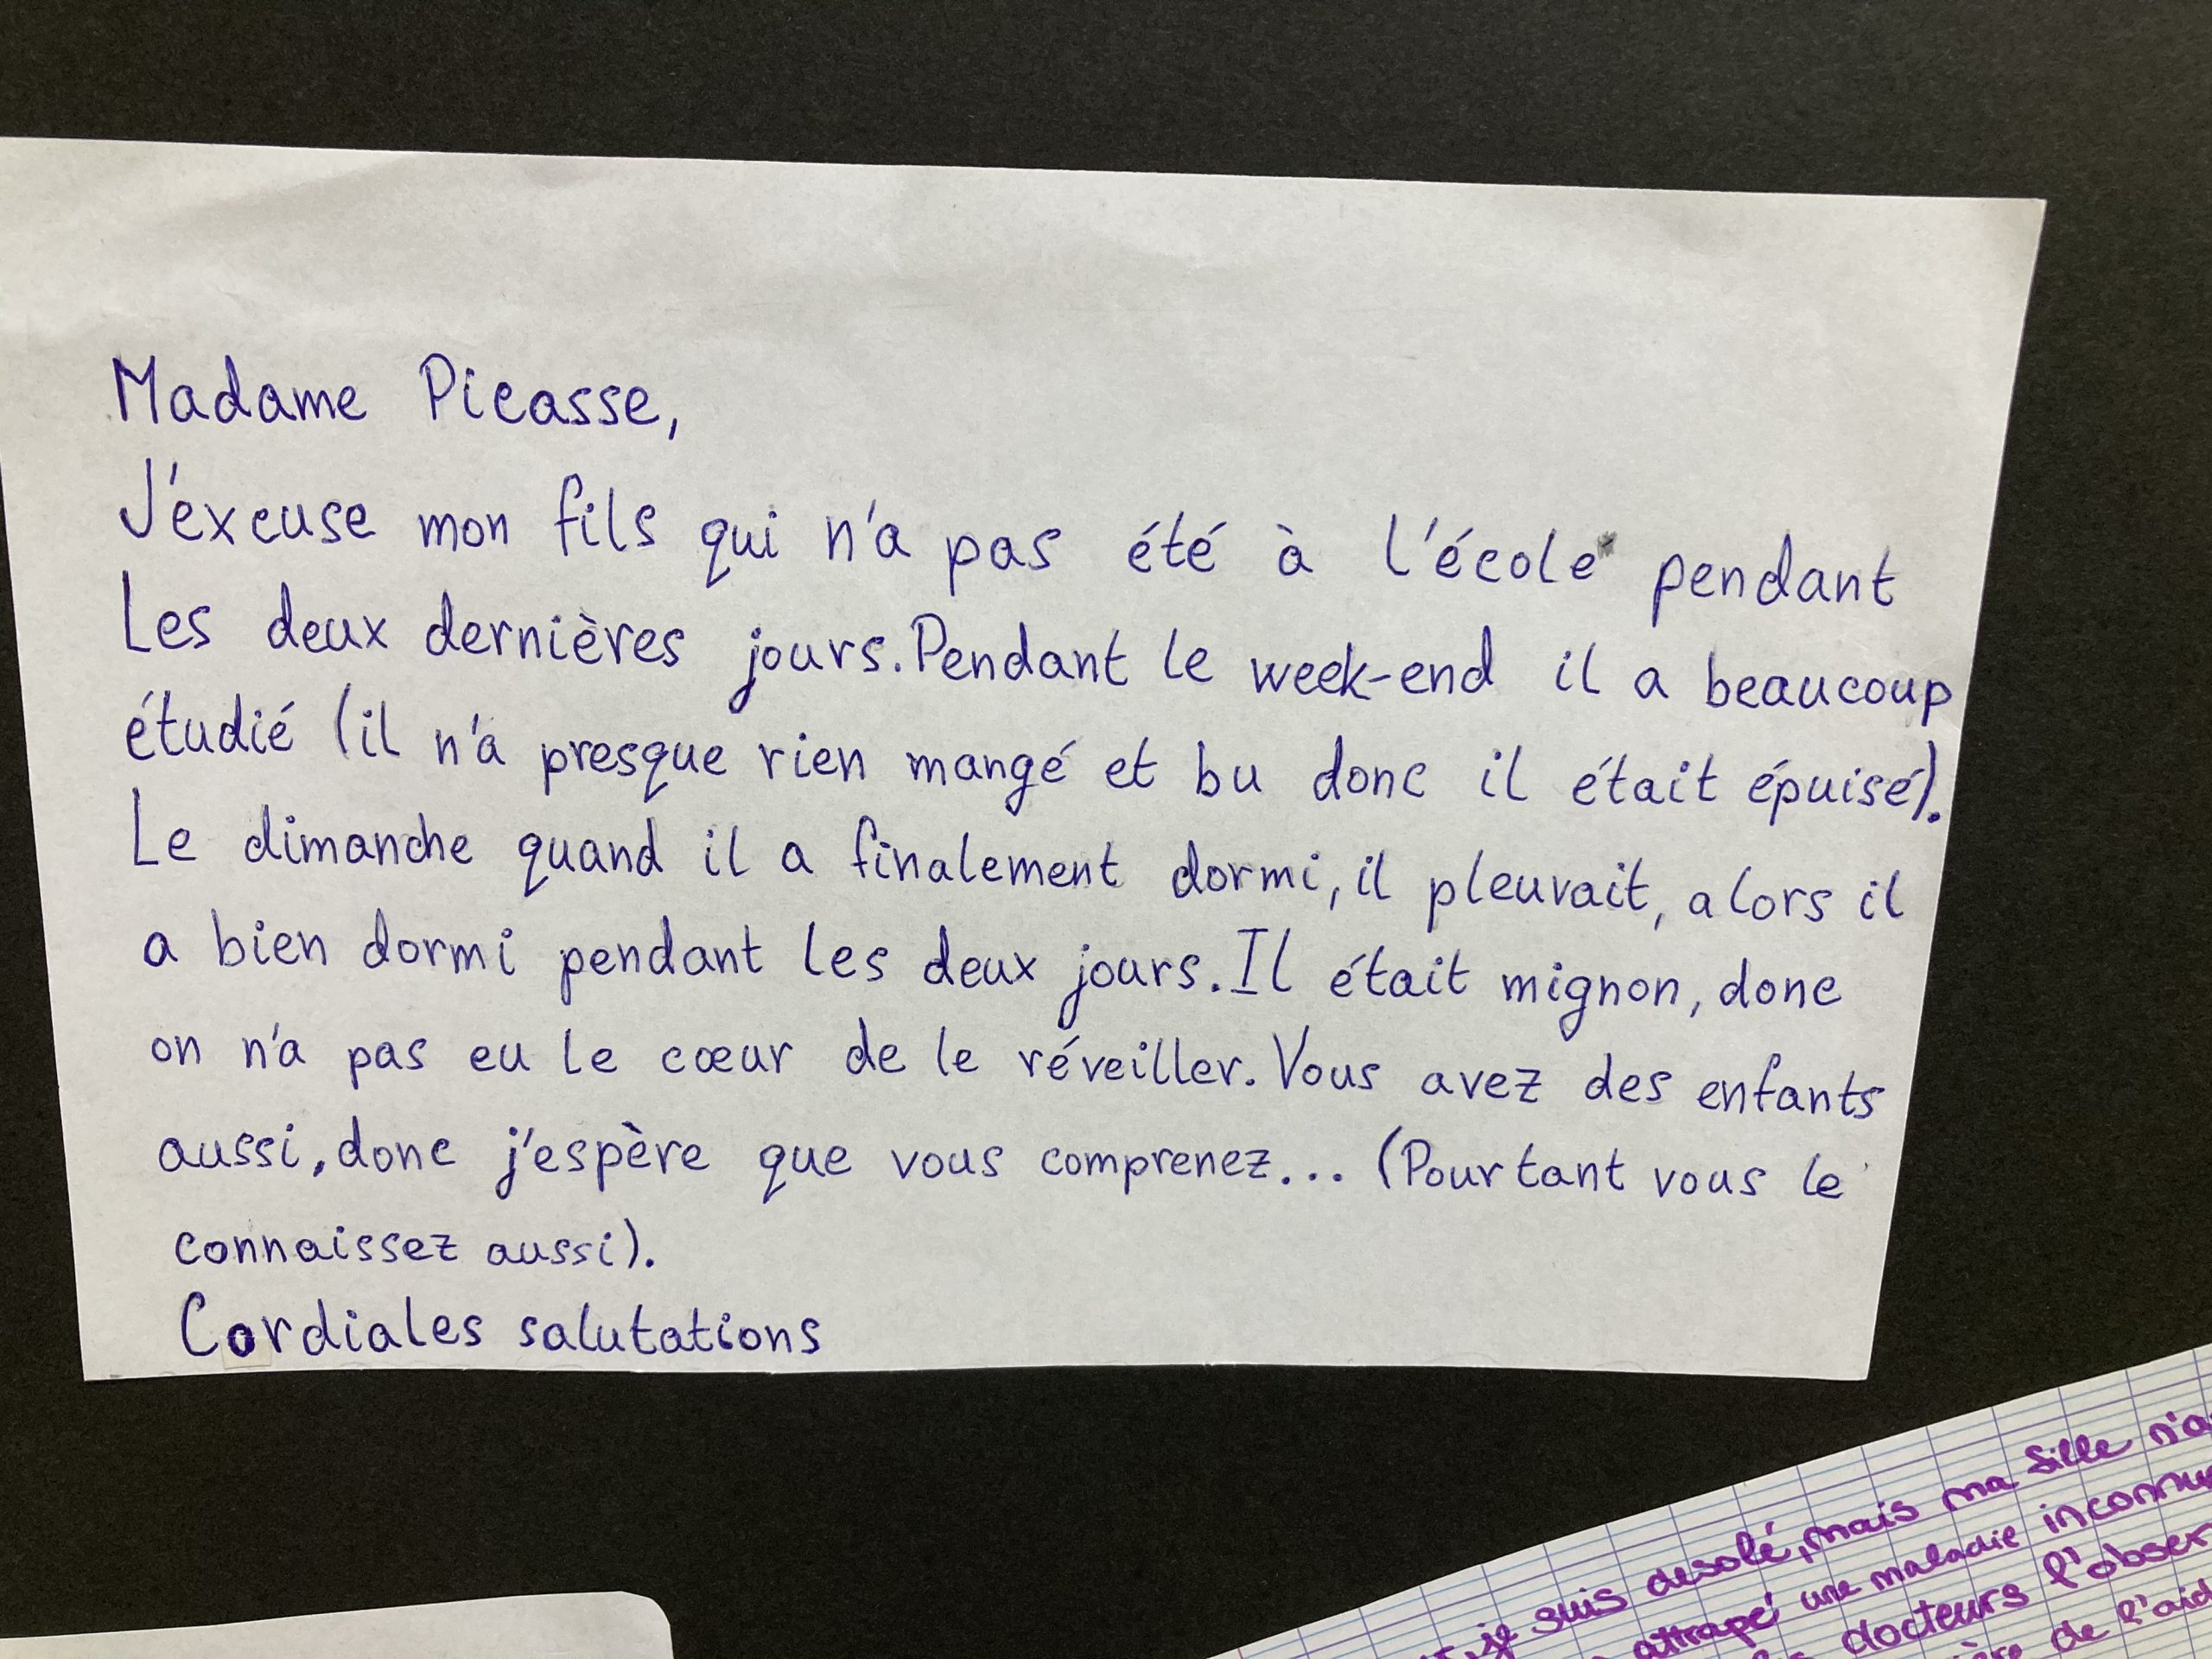 Madame Picasse,
J'éxcuse mon fils qui n'a pas été à l'école pendant
Les deux dernières jours. Pendant le week-end il a beaucoup
étudié (il n'a presque rien mangé et bu donc il était épuisé).
Le dimanche quand il a finalement dormi, il pleuvait, alors il
a bien dormi pendant les deux jours. Il était mignon, donc
on n'a pas eu le cœur de le réveiller. Vous avez des enfants
aussi, donc j'espère que vous comprenez... (Pourtant vous le
connaissez aussi).
Cordiales salutations
je suis desolé, mais ma fille n'a
attrapé une maladie inconnu
docteurs l'obser
de l'aid